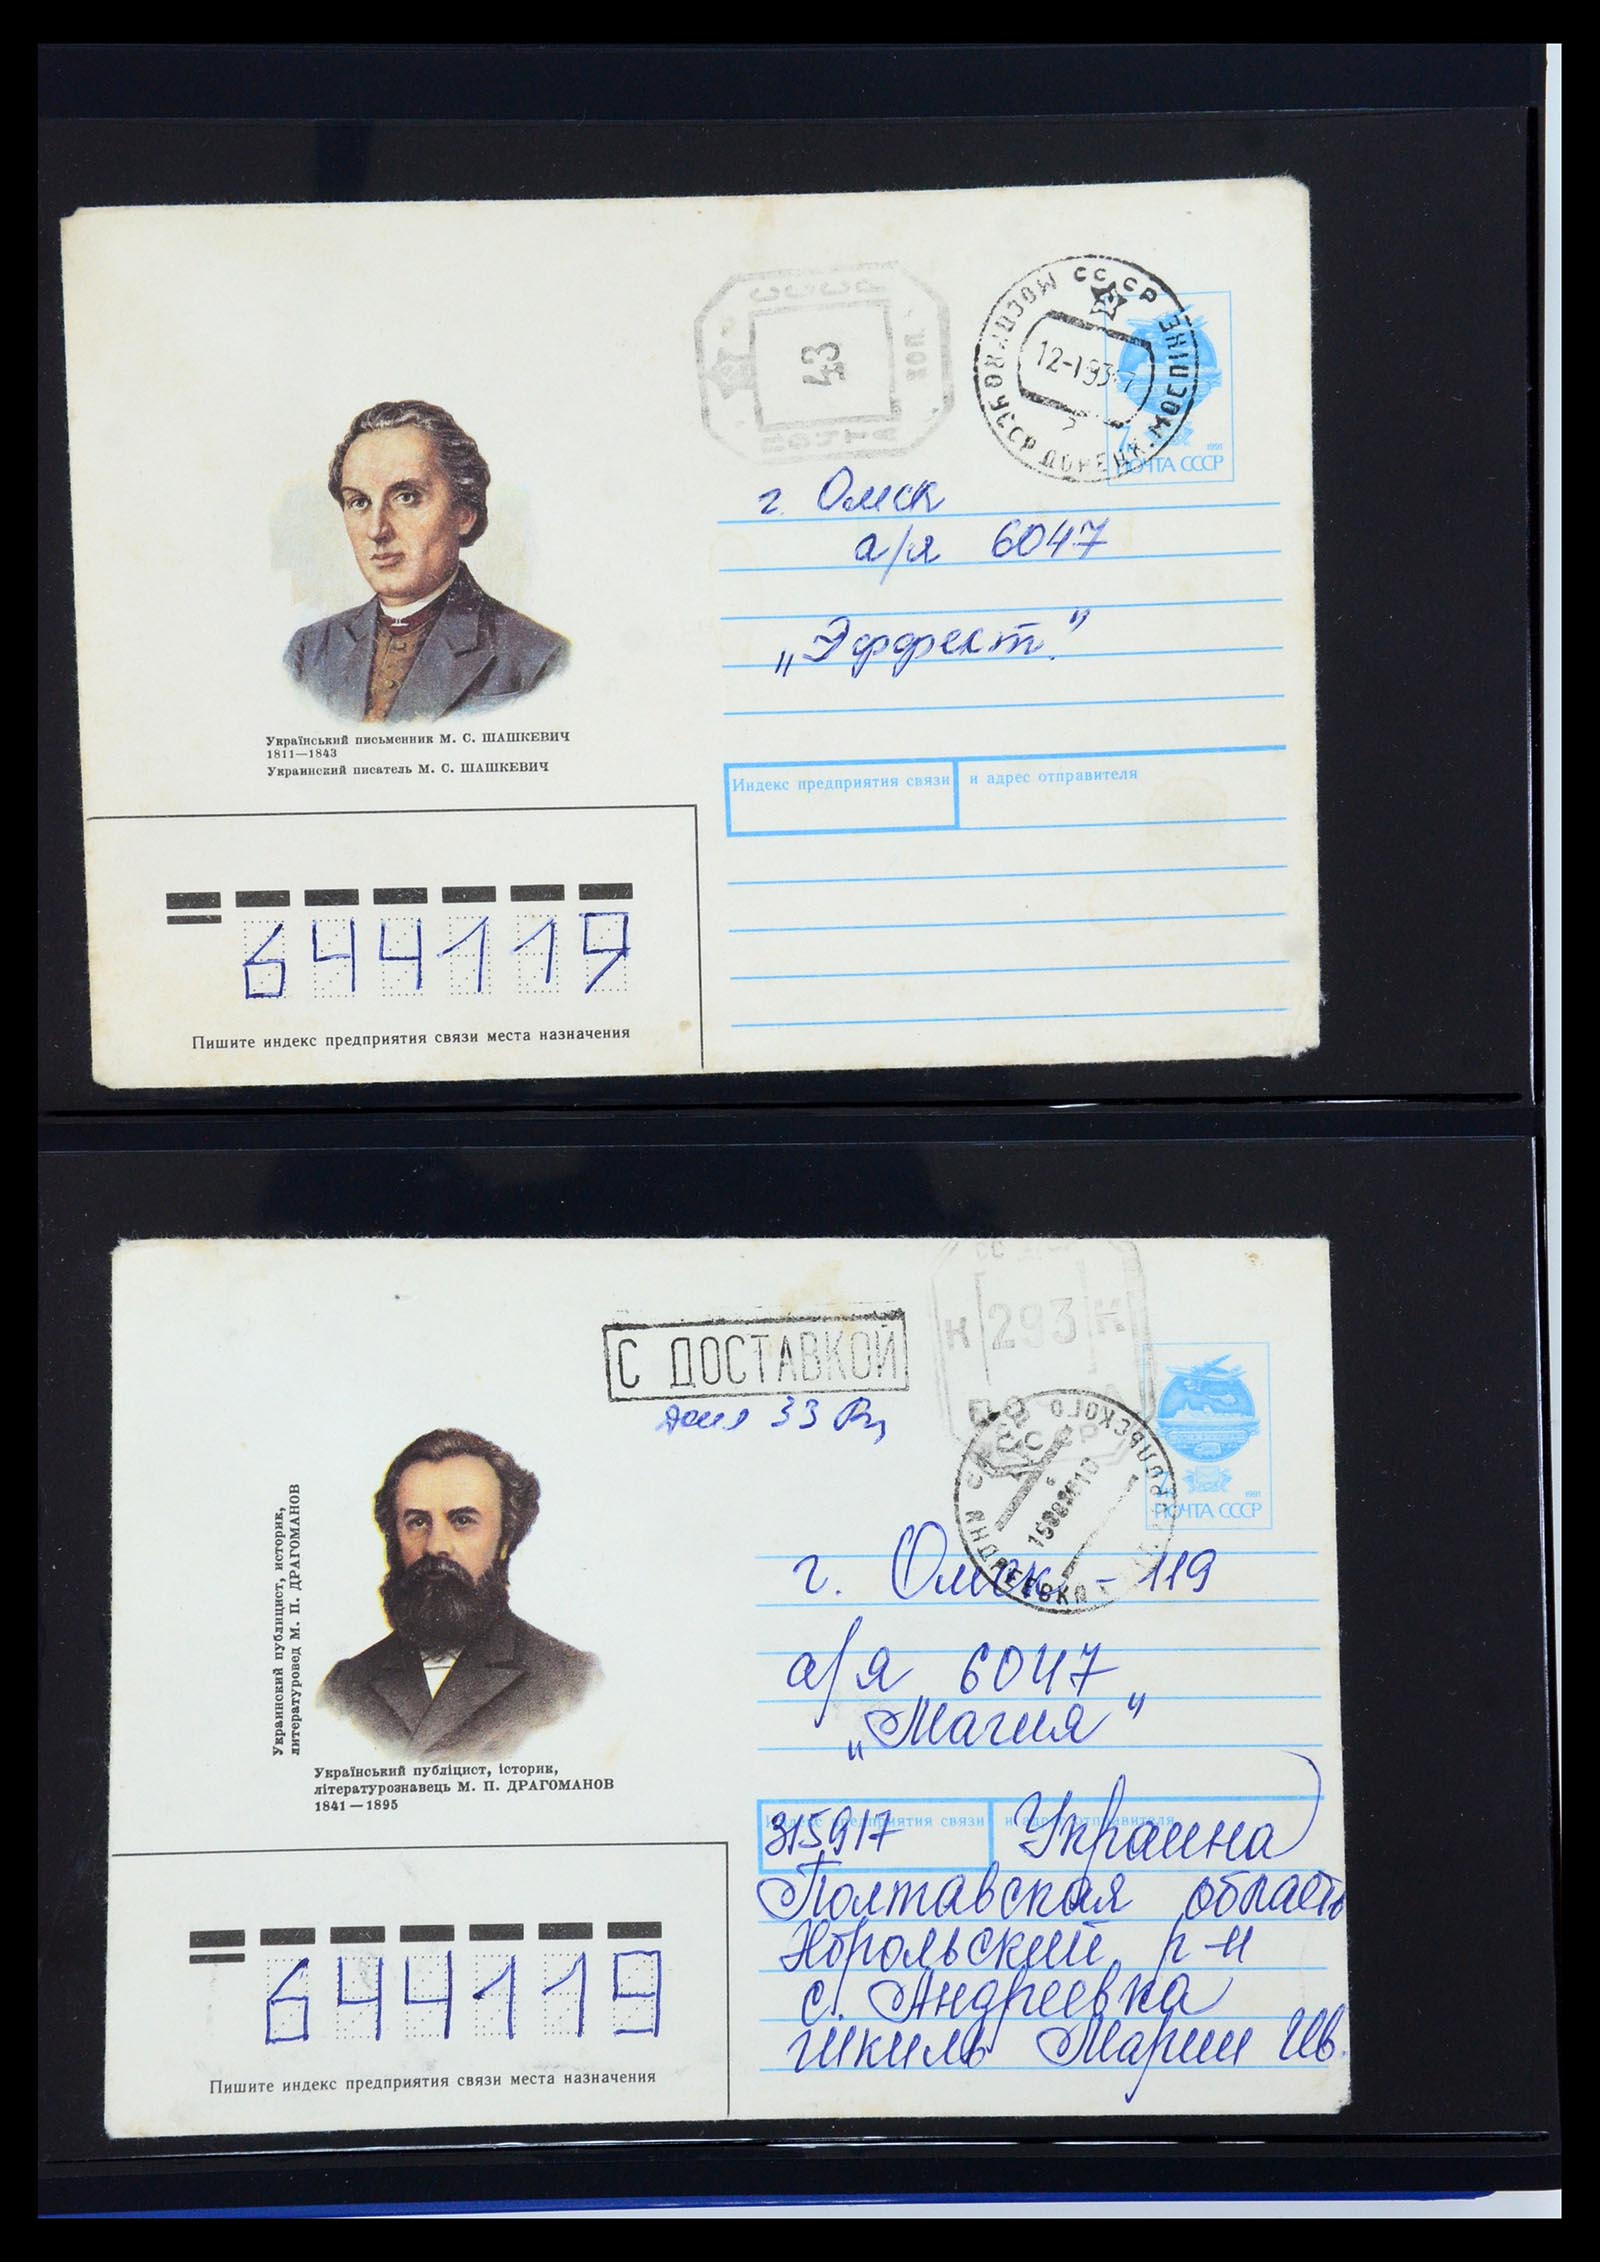 СССР
43
ПОЧТА
СССР
12-1 93
ДОНЕЦК.
7
1991
ПОЧТА СССР
г. Омск
а/я 6047
„Эффект."
Український письменник М. С. ШАШКЕВИЧ
1811—1843
Украинский писатель М. С. ШАШКЕВИЧ
Индекс предприятия связи и адрес отправителя
644119
Пишите индекс предприятия связи места назначения
С ДОСТАВКОЙ
33
К 293 К
1991
ПОЧТА СССР
г. Омск - 119
а/я 6047
„Магия"
Украинский публицист, историк,
литературовед М. П. ДРАГОМАНОВ
Український публіцист, історик,
літературознавець М. П. ДРАГОМАНОВ
1841—1895
Индекс предприятия связи и адрес отправителя
315917 Украина
Полтавская область
Хорольский р-н
с. Андреевка
Шкиль Марии Ив.
644119
Пишите индекс предприятия связи места назначения